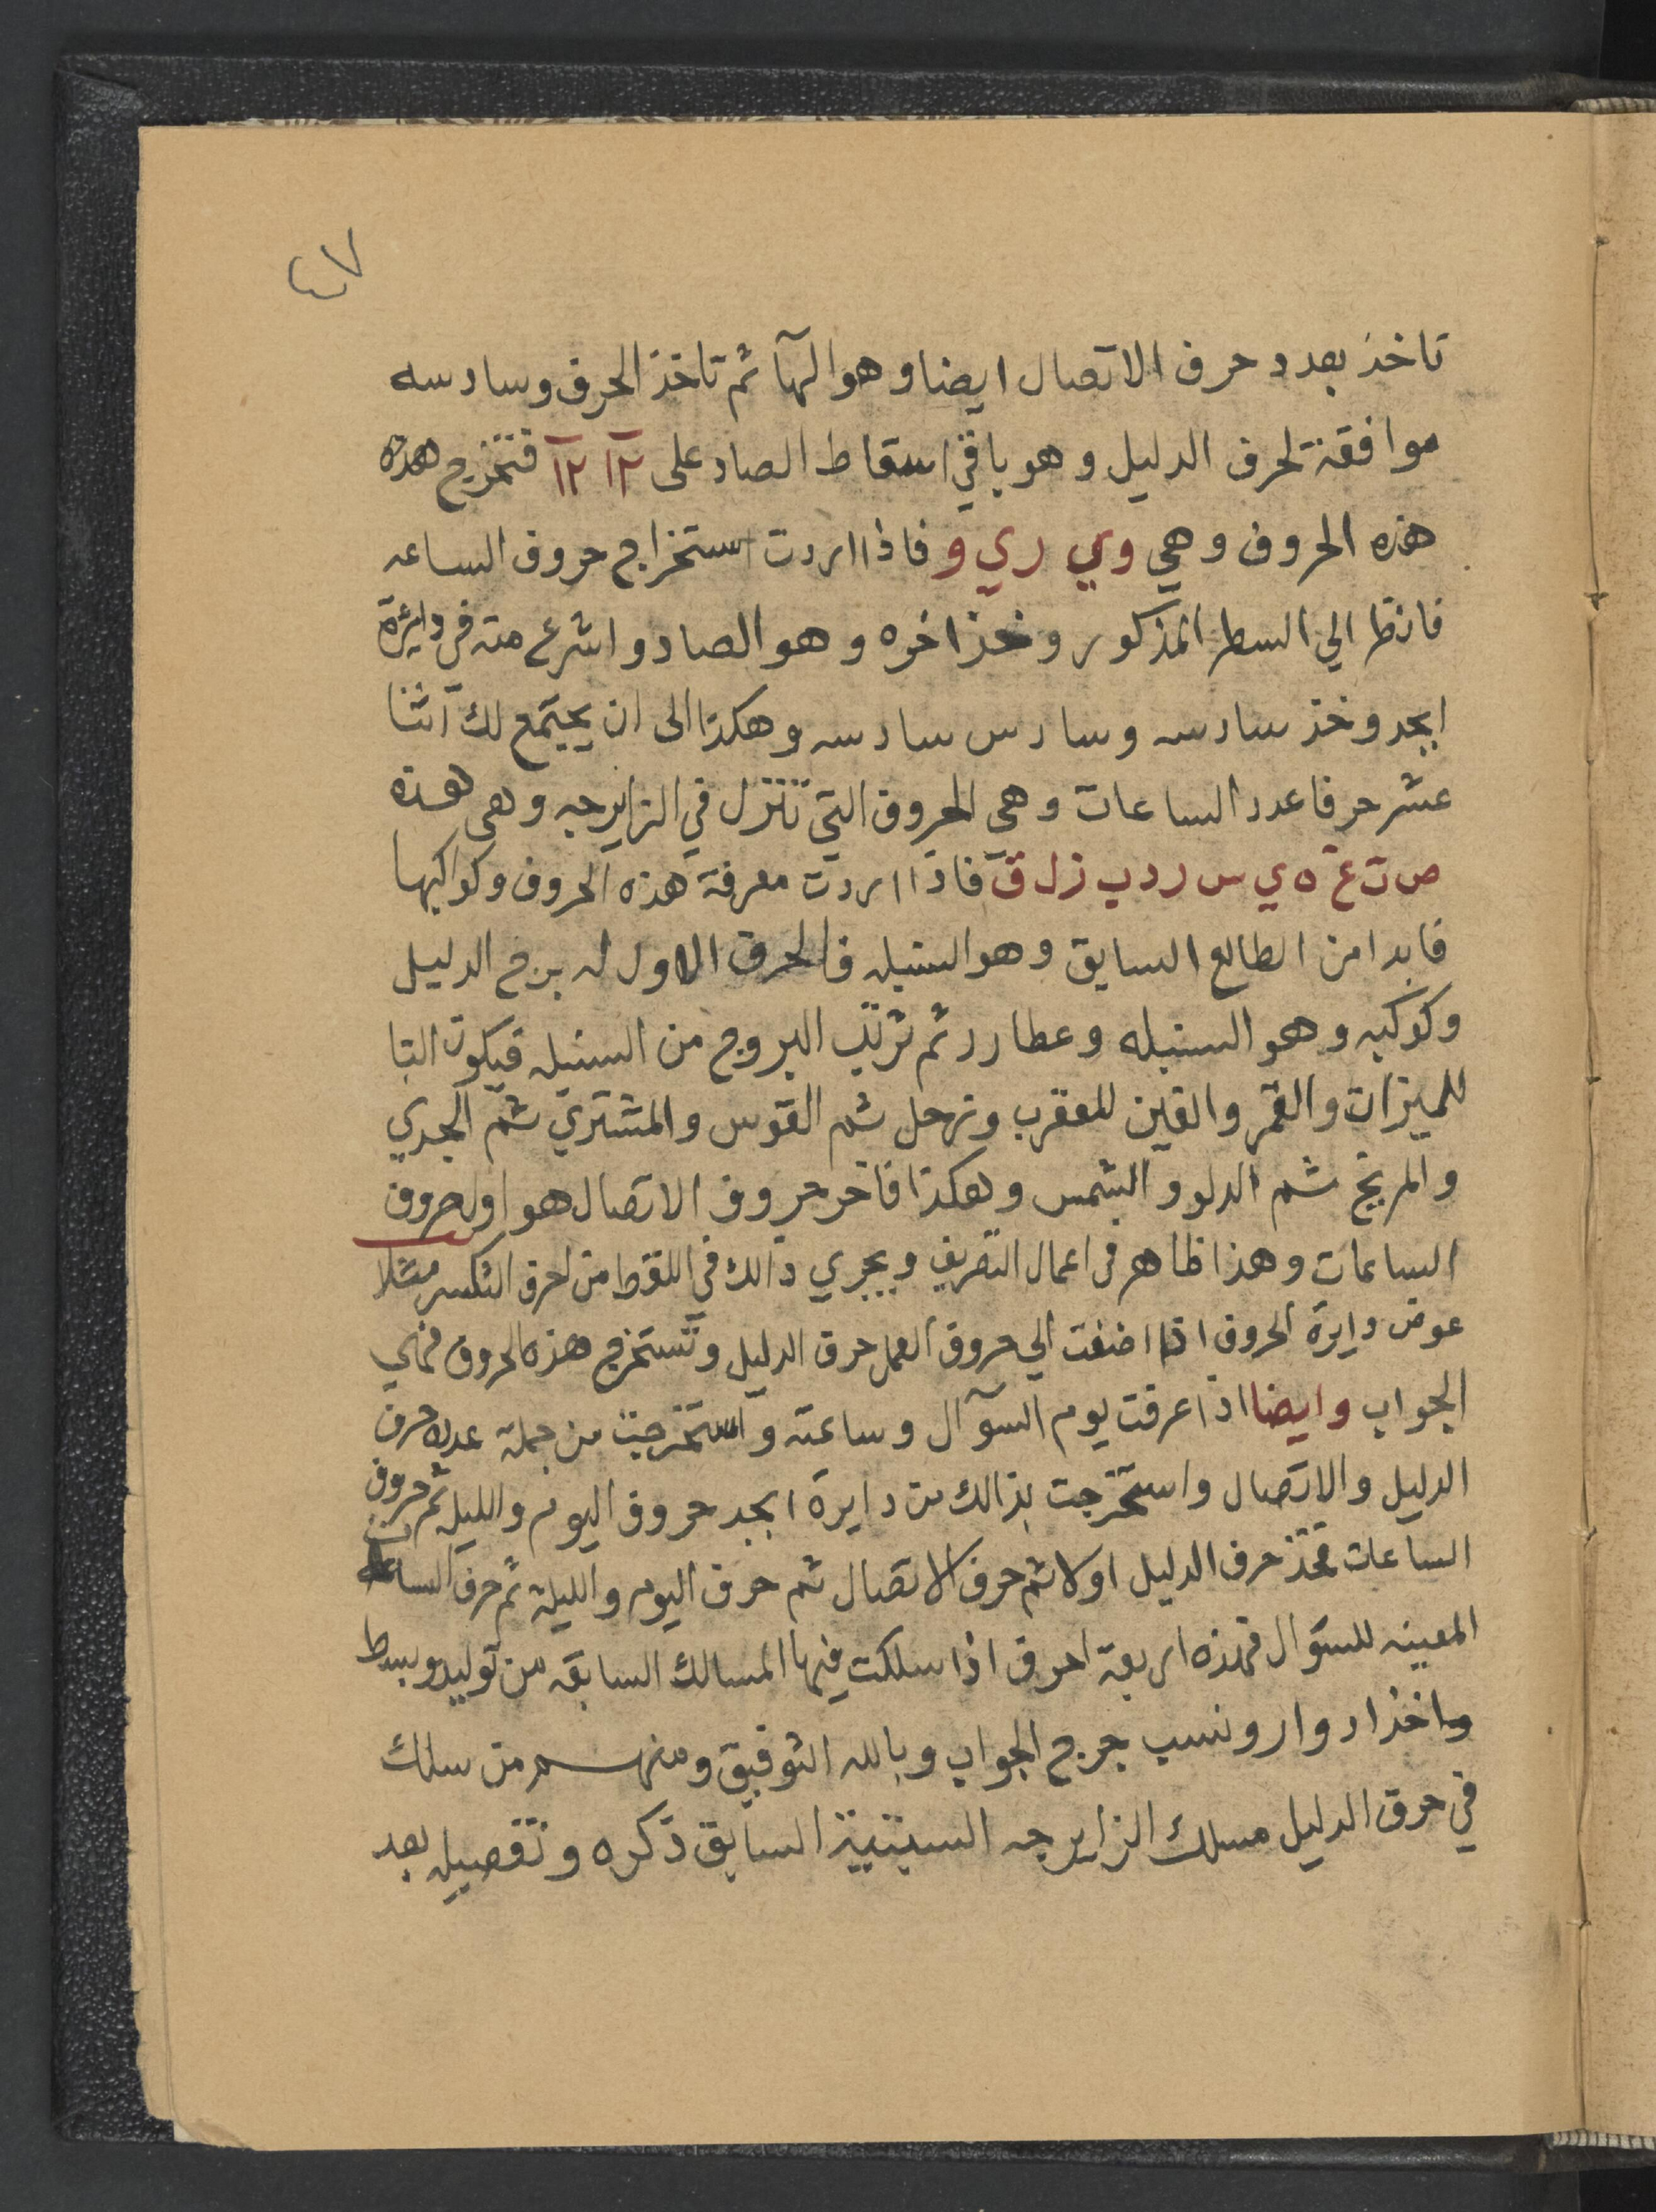 ٤٧
تاخذ بعدد حرف الاتصال ايضا وهو الهآ ثم تاخذ الحرف وسادسه
موافقة لحرف الدليل وهو باقي اسقاط الصاد على ١٢ ١٢ فتخرج هذه
هذه الحروف وهي وي ري و فاذا اردت استخراج حروف الساعه
فانظر الي السطر المذكور وخذ اخره وهو الصاد واشرع منه في دايرة
ابجد وخذ سادسه وسادس سادسه وهكذا الى ان يجتمع لك اثنا
عشر حرفا عدد الساعات وهي الحروف التي تنزل في الزايرجه وهى هذه
ص ت ع ه ي س ر د ب ز ل ق فاذا اردت معرفة هذه الحروف وكواكبها
فابدا من الطالع السابق وهو السنبله فالحرف الاول له برج الدليل
وكوكبه وهو السنبله وعطارد ثم ترتب البروج من السنبله فيكون التا
للميزان والقمر والعين للعقرب وزحل ثم القوس والمشتري ثم الجدي
والمريخ ثم الدلو والشمس وهكذا فاخر حروف الاتصال هو اول حروف
الساعات وهذا ظاهر في اعمال التصريف ويجري ذالك في اللقط من احرف التكسير مثلا
عوض دايرة الحروف اذا اضفت الي حروف العمل حرف الدليل وتستخرج هذه الحروف فهي
الجواب وايضا اذا عرفت يوم السوآل وساعته واستخرجت من جملة عدده حرف
الدليل والاتصال واستخرجت بذالك من دايرة ابجد حروف اليوم والليله ثم حروف
الساعات فخذ حرف الدليل اولا ثم حرف الاتصال ثم حرف اليوم والليلة ثم حرف الساعات
المعينه للسؤال فهذه اربعة احرف اذا سلكت فيها المسالك السابقه من توليد وبسط
واخذ ادوار ونسب خرج الجواب وبالله التوفيق ومنهم من سلك
في حرف الدليل مسلك الزايرجه السبتية السابق ذكره وتفصيله بعد